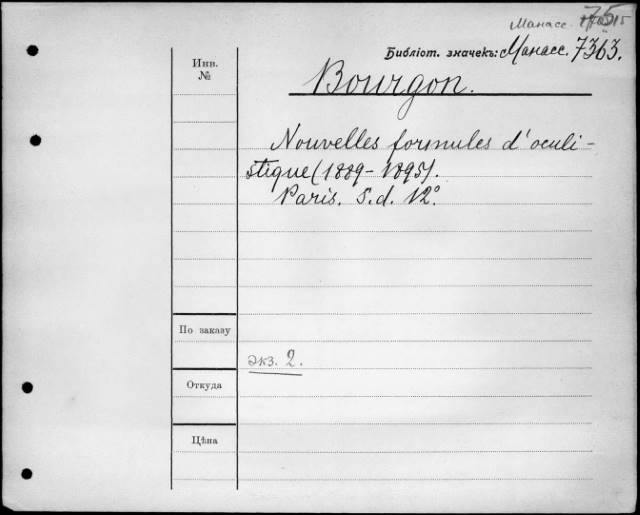 Манасс.
Библіот. значекъ: Манасс. 7363.
Инв.
№
Bourgon.
Nouvelles formules d'oculi-
stique (1889-1895).
Paris. S.d. 12°
По заказу
экз. 2.
Откуда
Цѣна